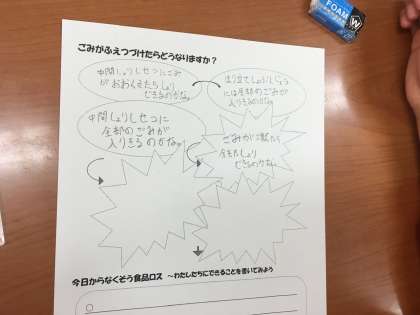 ごみがふえつづけたらどうなりますか？
中間しょりしせつにごみ
が
しょり
できるのかな。
うめ立てしょりしょう
には全部のごみが
入りきるのかな。
中間しょりしせつに
全部のごみが
入りきるのかな。
ごみが
全部しょり
できるのかな。
今日からなくそう食品ロス ～わたしたちにできることを書いてみよう
FOAM
W